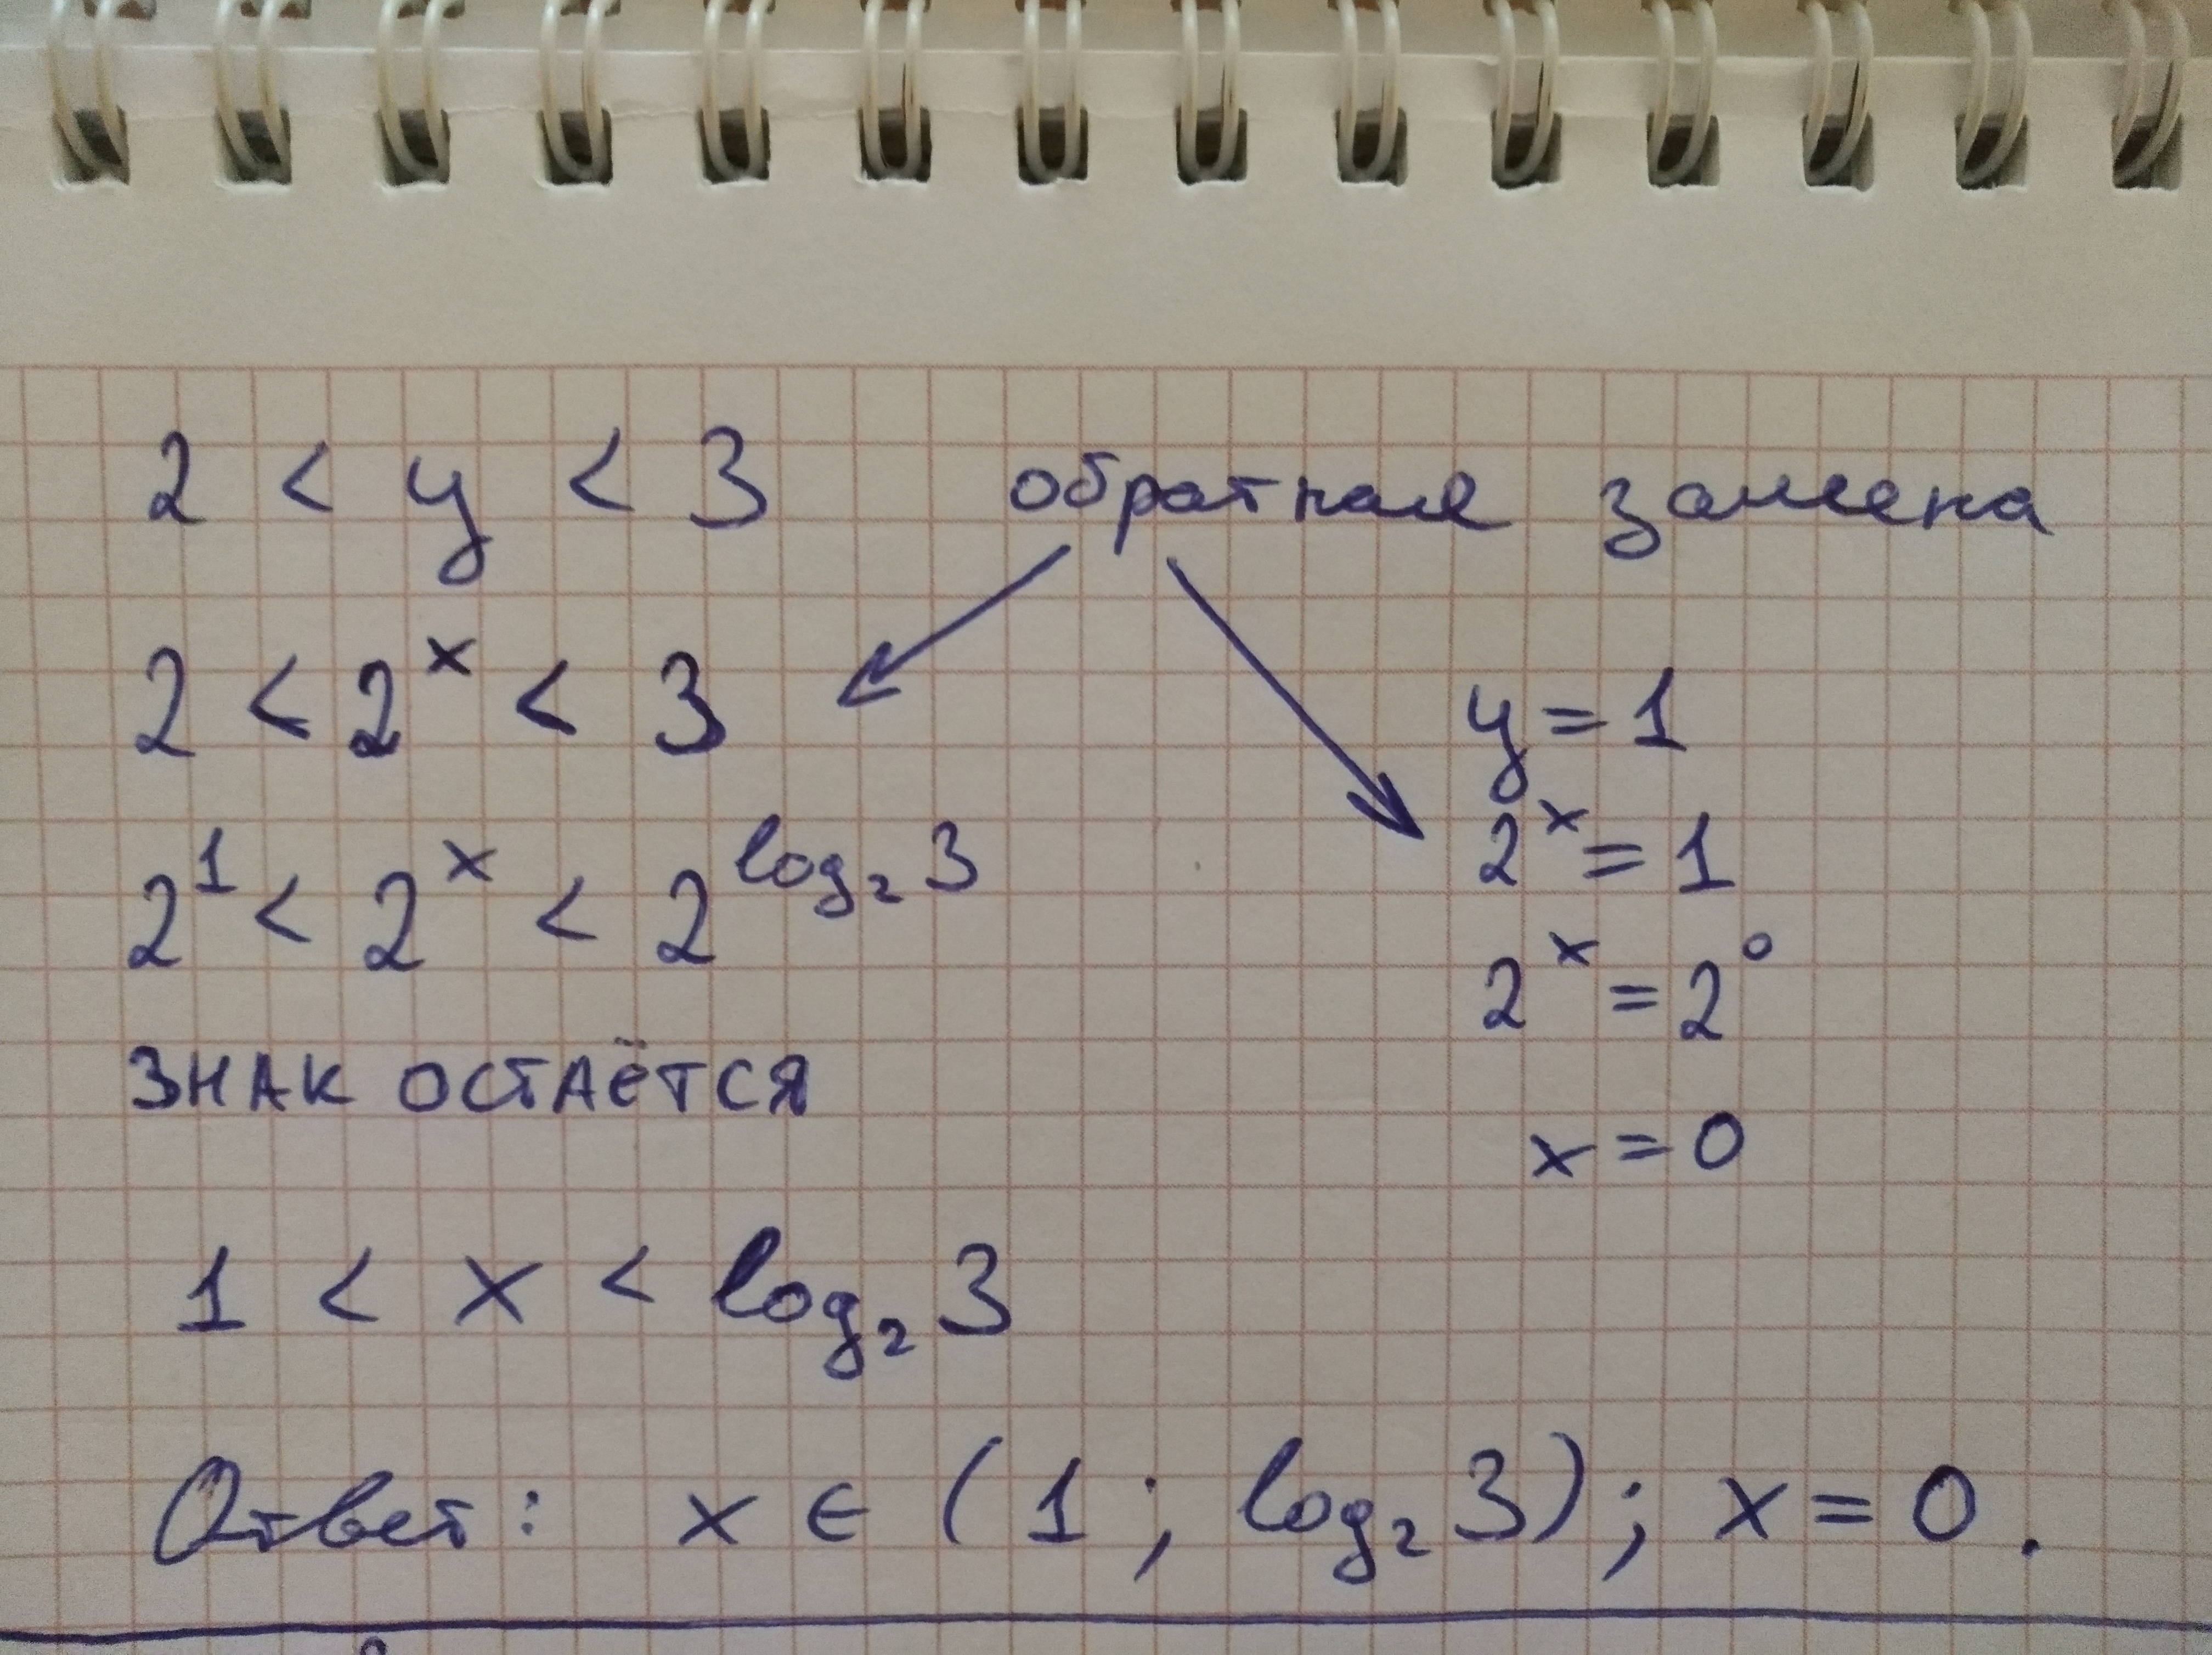 2 < y < 3 обратная замена
2 < 2^x < 3
y = 1
2^1 < 2^x < 2^{log_2 3}
2^x = 1
2^x = 2^0
ЗНАК ОСТАЁТСЯ
x = 0
1 < x < log_2 3
Ответ: x ∈ (1 ; log_2 3) ; x = 0 .